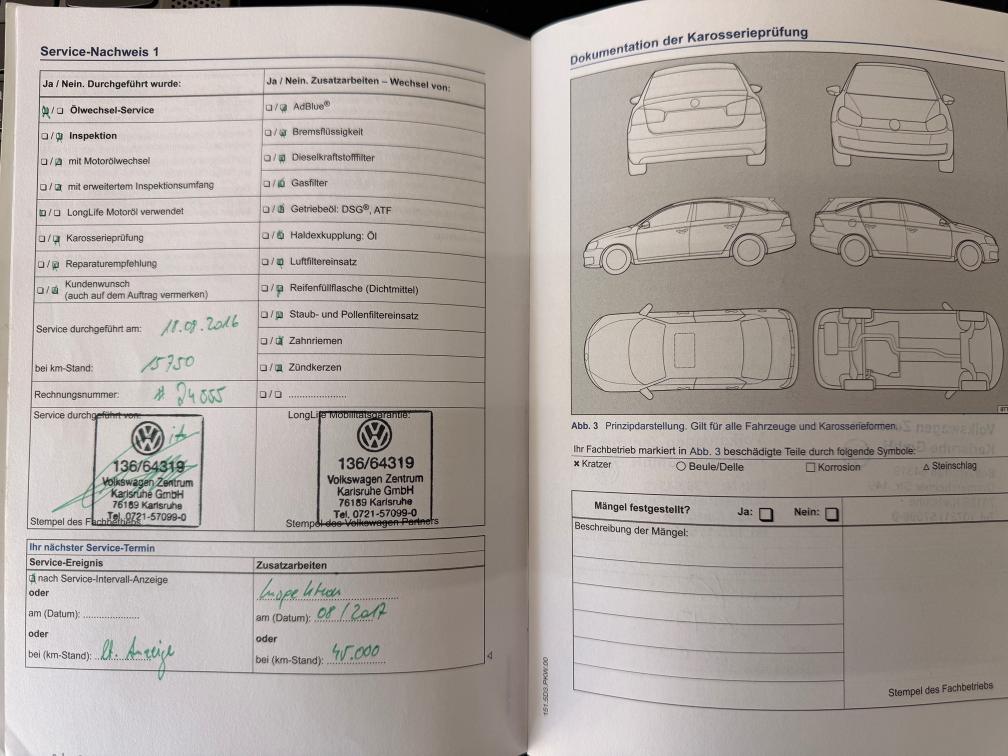 Service-Nachweis 1
Ja / Nein. Durchgeführt wurde:
Ölwechsel-Service
Inspektion
mit Motorölwechsel
mit erweitertem Inspektionsumfang
LongLife Motoröl verwendet
Karosserieprüfung
Reparaturempfehlung
Kundenwunsch
(auch auf dem Auftrag vermerken)
Service durchgeführt am: 18.08.2016
bei km-Stand: 15750
Rechnungsnummer: # 24555
Ja / Nein. Zusatzarbeiten – Wechsel von:
AdBlue®
Bremsflüssigkeit
Dieselkraftstofffilter
Gasfilter
Getriebeöl: DSG®, ATF
Haldexkupplung: Öl
Luftfiltereinsatz
Reifenfüllflasche (Dichtmittel)
Staub- und Pollenfiltereinsatz
Zahnriemen
Zündkerzen
Service durchgeführt von:
136/64319
Volkswagen Zentrum
Karlsruhe GmbH
76189 Karlsruhe
Tel. 0721-57099-0
Stempel des Fachbetriebs
LongLife Mobilitätsgarantie:
136/64319
Volkswagen Zentrum
Karlsruhe GmbH
76189 Karlsruhe
Tel. 0721-57099-0
Stempel des Volkswagen Partners
Ihr nächster Service-Termin
Service-Ereignis
nach Service-Intervall-Anzeige
oder
am (Datum):
oder
bei (km-Stand): lt. Anzeige
Zusatzarbeiten
Inspektion
am (Datum): 08/2017
oder
bei (km-Stand): 45.000
4
Dokumentation der Karosserieprüfung
Abb. 3 Prinzipdarstellung. Gilt für alle Fahrzeuge und Karosserieformen.
Ihr Fachbetrieb markiert in Abb. 3 beschädigte Teile durch folgende Symbole:
× Kratzer ○ Beule/Delle □ Korrosion △ Steinschlag
Mängel festgestellt? Ja: Nein:
Beschreibung der Mängel:
Stempel des Fachbetriebs
151.5D3.PKW.00